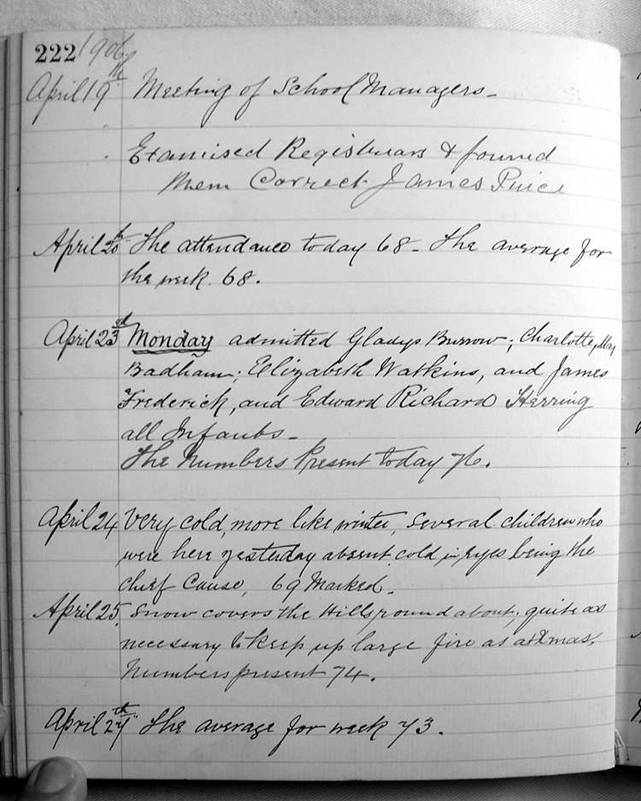 222 1906
April 19th Meeting of School Managers -
Examised Registuars & found
them Correct James Price
April 20th The attendance today 68 - The average for
the week 68.
April 23rd Monday admitted Gladys Burrow; Charlotte, May
Badham; Elizabeth Watkins, and James
Frederick, and Edward Richard Herring
all Infants -
The Numbers Present today 76.
April 24 Very cold, more like winter, Several children who
were here yesterday absent, cold in eyes being the
chief Cause, 69 Marked.
April 25 Snow covers the Hills round about, quite as
necessary to keep up large fire as at Xmas,
Numbers present 74.
April 27th The average for week 73.